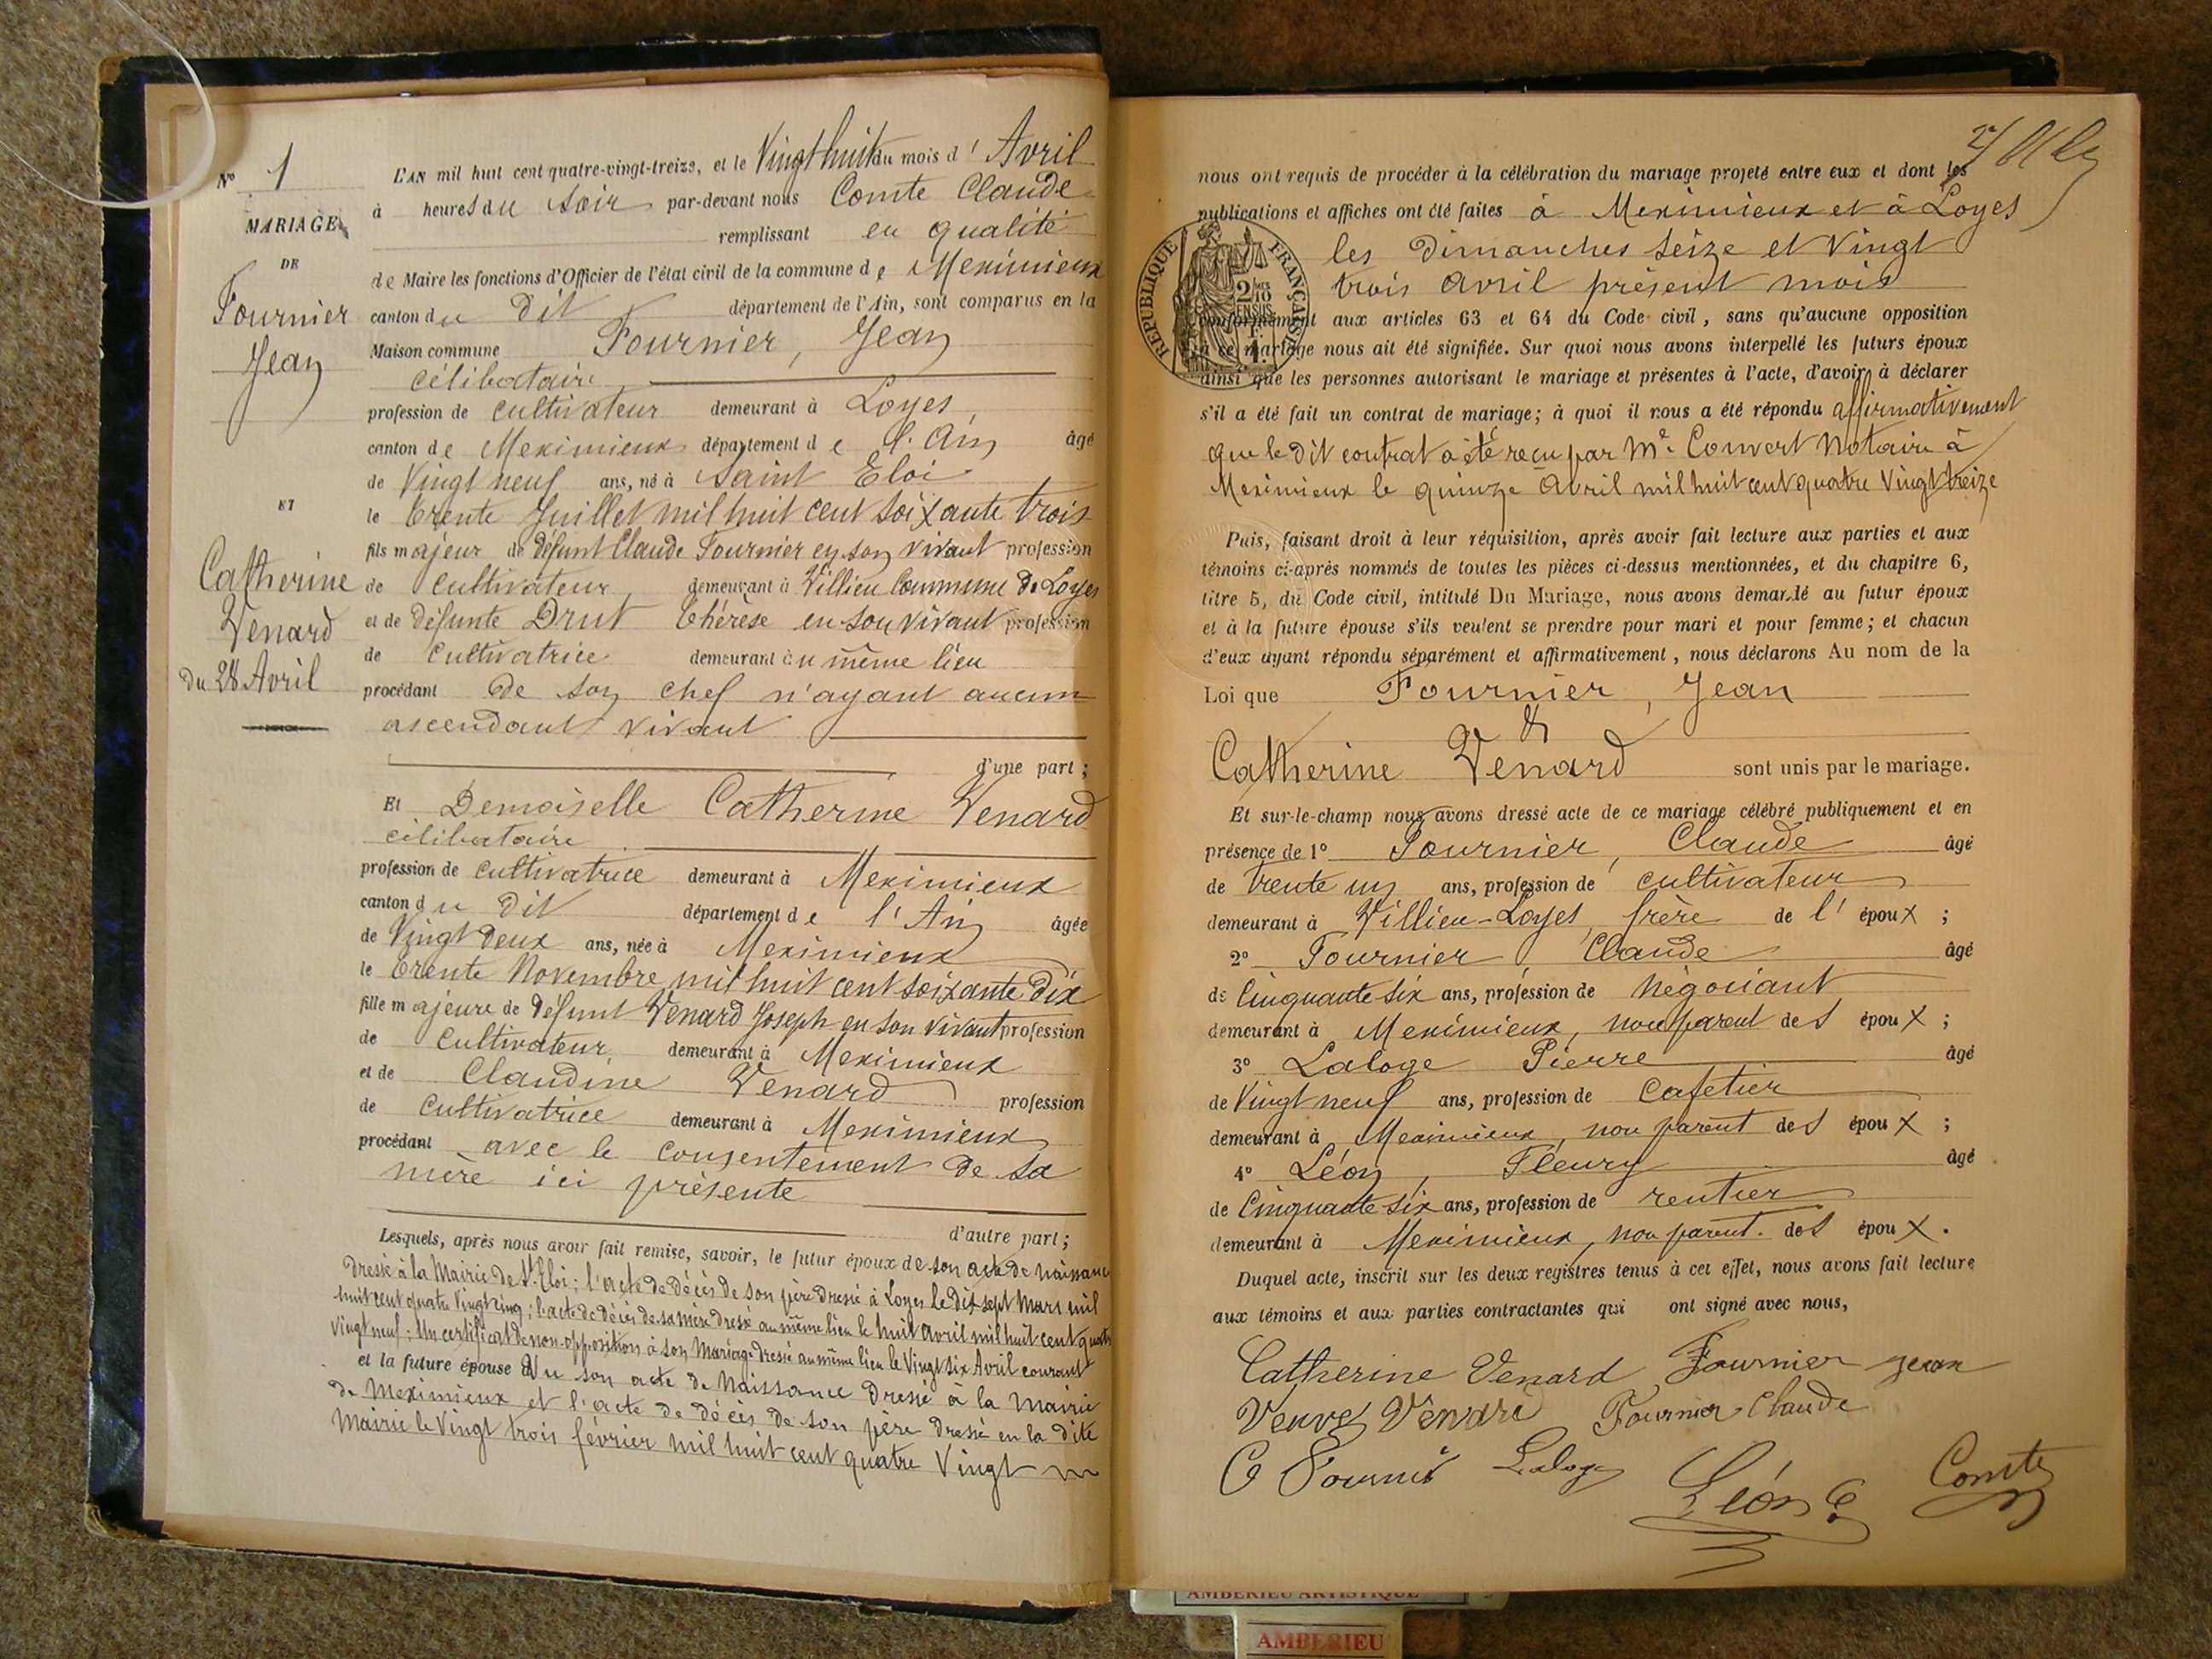 N° 1
MARIAGE
DE
Fournier
Jean
ET
Catherine
Venard
du 28 Avril
L'AN mil huit cent quatre-vingt-treize, et le Vingt huit du mois d' Avril
à heures du soir par-devant nous Comte Claude
remplissant en qualité
de Maire les fonctions d'Officier de l'état civil de la commune de Meximieux
canton du dit département de l'Ain, sont comparus en la
Maison commune Fournier, Jean
célibataire
profession de cultivateur demeurant à Loyes,
canton de Meximieux département de l'Ain âgé
de Vingt neuf ans, né à Saint Eloi
le trente Juillet mil huit cent soixante trois
fils majeur de défunt Claude Fournier en son vivant profession
de cultivateur demeurant à Villieu Commune de Loyes
et de défunte Drut Thérèse en son vivant profession
de cultivatrice demeurant au même lieu
procédant de son chef n'ayant aucun
ascendant vivant
d'une part ;
Et Demoiselle Catherine Venard
célibataire
profession de cultivatrice demeurant à Meximieux
canton du dit département de l'Ain âgée
de Vingt deux ans, née à Meximieux
le trente Novembre mil huit cent soixante dix
fille majeure de défunt Venard Joseph en son vivant profession
de cultivateur demeurant à Meximieux
et de Claudine Venard profession
de cultivatrice demeurant à Meximieux
procédant avec le consentement de sa
mère ici présente
d'autre part ;
Lesquels, après nous avoir fait remise, savoir, le futur époux de son acte de naissance
dressé à la Mairie de St Eloi ; l'acte de décès de son père dressé à Loyes le dix sept Mars mil
huit cent quatre Vingt cinq ; l'acte de décès de sa mère dressé au même lieu le huit avril mil huit cent quatre
Vingt neuf ; Un certificat de non-opposition à son Mariage dressé au même lieu le Vingt six Avril courant
et la future épouse de son acte de Naissance dressé à la Mairie
de Meximieux et l'acte de décès de son père dressé en la dite
Mairie le Vingt trois février mil huit cent quatre Vingt
nous ont requis de procéder à la célébration du mariage projeté entre eux et dont les
publications et affiches ont été faites à Meximieux et à Loyes
les dimanches seize et vingt
trois avril présent mois
RÉPUBLIQUE FRANÇAISE
conformément aux articles 63 et 64 du Code civil, sans qu'aucune opposition
à ce mariage nous ait été signifiée. Sur quoi nous avons interpellé les futurs époux
ainsi que les personnes autorisant le mariage et présentes à l'acte, d'avoir à déclarer
s'il a été fait un contrat de mariage ; à quoi il nous a été répondu affirmativement
que le dit contrat a été reçu par Me Convert Notaire à
Meximieux le quinze Avril mil huit cent quatre Vingt treize
Puis, faisant droit à leur réquisition, après avoir fait lecture aux parties et aux
témoins ci-après nommés de toutes les pièces ci-dessus mentionnées, et du chapitre 6,
titre 5, du Code civil, intitulé Du Mariage, nous avons demandé au futur époux
et à la future épouse s'ils veulent se prendre pour mari et pour femme ; et chacun
d'eux ayant répondu séparément et affirmativement, nous déclarons Au nom de la
Loi que Fournier, Jean
&
Catherine Venard sont unis par le mariage.
Et sur-le-champ nous avons dressé acte de ce mariage célébré publiquement et en
présence de 1° Fournier, Claude âgé
de trente un ans, profession de cultivateur
demeurant à Villieu-Loyes, frère de l'époux ;
2° Fournier Claude âgé
de Cinquante six ans, profession de négociant
demeurant à Meximieux, non parent des époux ;
3° Laloge Pierre âgé
de Vingt neuf ans, profession de Cafetier
demeurant à Meximieux, non parent des époux ;
4° Léon, Fleury âgé
de Cinquante six ans, profession de rentier
demeurant à Meximieux, non parent des époux.
Duquel acte, inscrit sur les deux registres tenus à cet effet, nous avons fait lecture
aux témoins et aux parties contractantes qui ont signé avec nous,
Catherine Venard Fournier jean
Veuve Venard Fournier Claude
C Fournier Laloge Léon Comte
AMBERIEU ARTISTIQUE
AMBERIEU